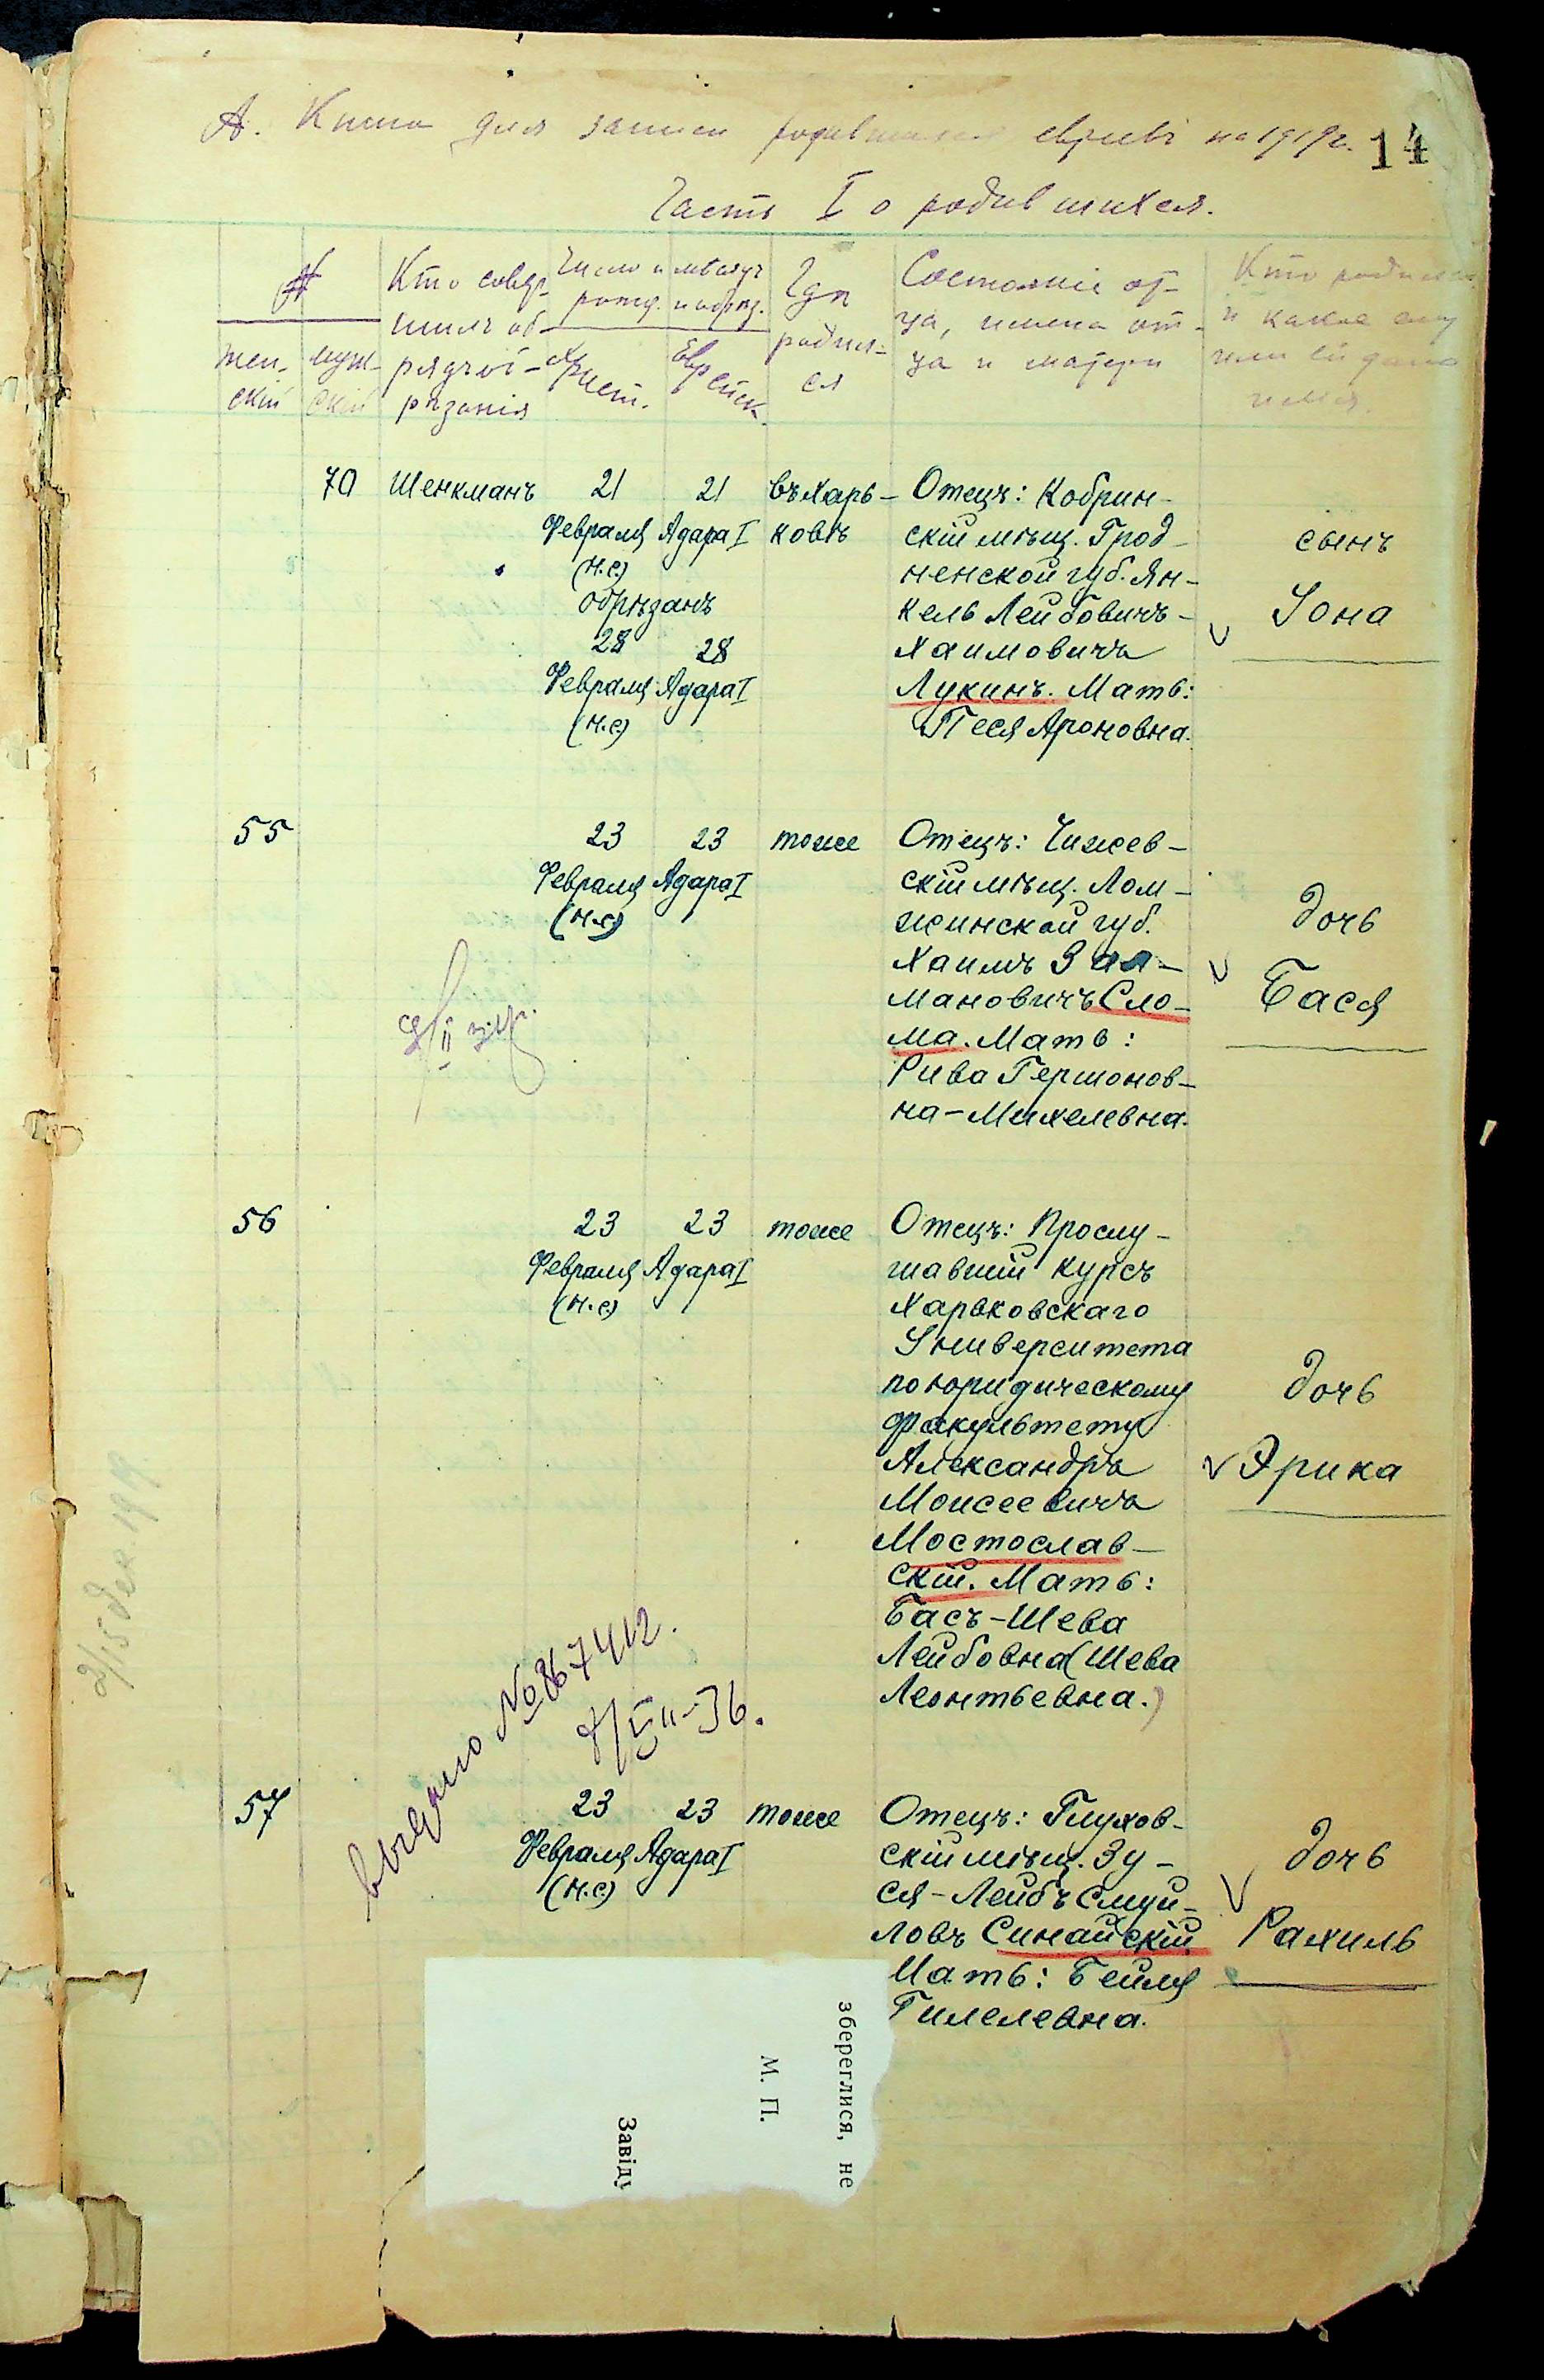 А. Книга для записи родившихся евреевъ на 1919г. 14
Часть I о родившихся.
№
Жен-
скій
муж-
скій
Кто совер-
шилъ об-
рядъ об-
рѣзанія
Число и мѣсяцъ
рожд. и обрѣз.
Христ.
Еврейск.
Гдѣ
родил-
ся
Состояніе от-
ца, имена от-
ца и матери
Кто родился
и какое ему
или ей дано
имя.
70 Шенкманъ
21 21
Февраля Адара I
(н.с)
Обрѣзанъ
28 28
Февраля Адара I
(н.с)
въ Харь-
ковѣ
Отецъ: Кобрин-
скій мѣщ. Грод-
ненской губ. Ян-
кель Лейбовичъ-
Хаимовичъ
Лукинъ. Мать:
Песя Ароновна.
сынъ
Iона
55
23 23 тоже
Февраля Адара I
(н.с)
Отецъ: Чижев-
скій мѣщ. Лом-
жинской губ.
Хаимъ Зал-
мановичъ Сло-
ма. Мать:
Рива Гершонов-
на-Михелевна.
дочь
Бася
56
23 23 тоже
Февраля Адара I
(н.с)
Отецъ: Прослу-
шавшій курсъ
Харьковскаго
Университета
по юридическому
факультету
Александръ
Моисеевичъ
Мостослав-
скій. Мать:
Басъ-Шева
Лейбовна (Шева
Леонтьевна.)
дочь
Эрика
выдано № 867412.
57
23 23 тоже
Февраля Адара I
(н.с)
Отецъ: Глухов-
скій мѣщ. Зу-
ся-Лейбъ Смуй-
ловъ Синайскій
Мать: Бейля
Гилелевна.
дочь
Рахиль
збереглися, не
М. П.
Завіду